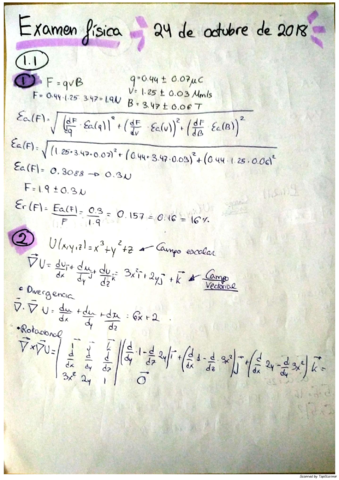 Examen física 24 de octubre de 2018
1.1
1 F = qvB q = 0.44 ± 0.07 μC
F = 0.44·1.25·3.47 = 1.9 N v = 1.25 ± 0.03 Mm/s
B = 3.47 ± 0.06 T
Ea(F) = √((dF/dq · Ea(q))² + (dF/dv · Ea(v))² + (dF/dB · Ea(B))²)
Ea(F) = √((1.25·3.47·0.07)² + (0.44·3.47·0.03)² + (0.44·1.25·0.06)²
Ea(F) = 0.3088 → 0.3 N
F = 1.9 ± 0.3 N
Er(F) = Ea(F)/F = 0.3/1.9 = 0.157 = 0.16 = 16%
2 U(x,y,z) = x³ + y² + z ← Campo escalar
∇U = du/dx i + du/dy j + du/dz k = 3x² i + 2y j + k ← Campo Vectorial
• Divergencia
∇·∇U = du/dx + du/dy + du/dz = 6x + 2
• Rotacional
∇×∇U = | i j k |
| d/dx d/dy d/dz | (d/dy 1 - d/dz 2y) i + (d/dx 1 - d/dz 3x²) j + (d/dx 2y - d/dy 3x²) k =
| 3x² 2y 1 | 0
Scanned by TapScanner